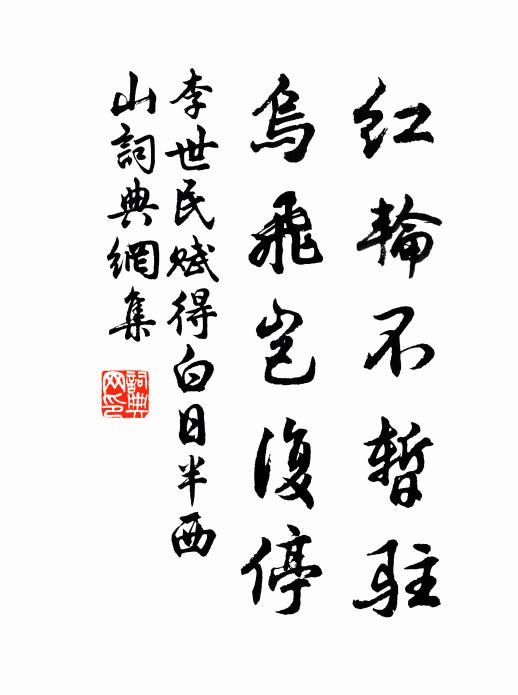 红輪不暫駐
烏飛豈復停
李世民賦得白日半西
山詞典網集
詞典
网印